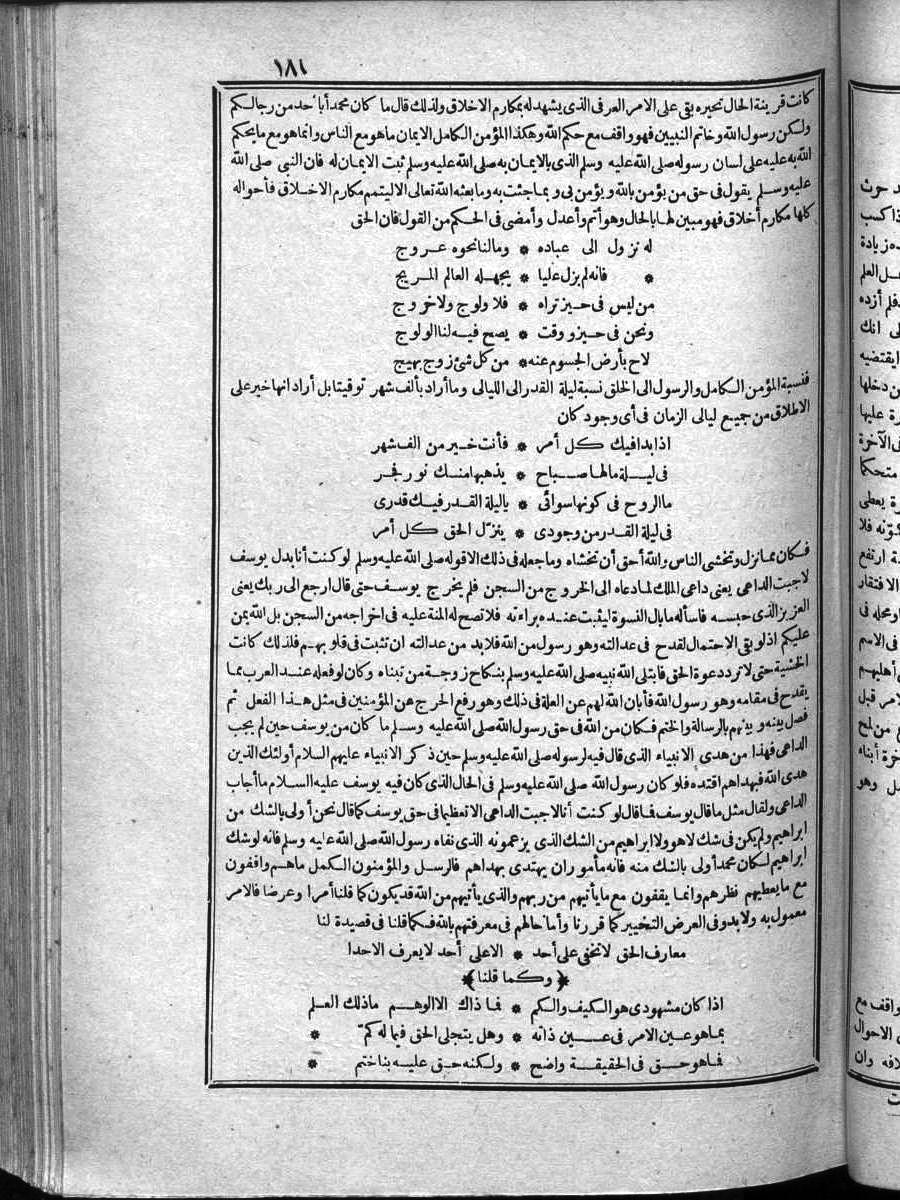 ١٨١
كانت قرينة الحال تحيره بقى على الامر العرفى الذى يشهد له بمكارم الاخلاق ولذلك قال ما كان محمد أبا أحد من رجالكم
ولكن رسول الله وخاتم النبيين فهو واقف مع حكم الله وهكذا المؤمن الكامل الايمان ماهو مع الناس وانما هو مع ما يحكم
الله به عليه على لسان رسوله صلى الله عليه وسلم الذى بالايمان به صلى الله عليه وسلم ثبت الايمان له فان النبى صلى الله
عليه وسلم يقول فى حق من يؤمن بالله ويؤمن بى وبما جئت به وما بعثه الله تعالى الا ليتمم مكارم الاخلاق فأحواله
كلها مكارم أخلاق فهو مبين لها بالحال وهو أتم وأعدل وأمضى فى الحكم من القول فان الحق
له نزول الى عباده * وما لنا نحوه عروج
* فانه لم يزل عليا * يجهله العالم المريج
من ليس فى حيز تراه * فلا ولوج ولا خروج
ونحن فى حيز ووقت * يصح فيه لنا الولوج
لاح بأرض الجسوم عنه * من كل شئ زوج بهيج
فنسبة المؤمن الكامل والرسول الى الخلق نسبة ليلة القدر الى الليالى وما أراد بألف شهر توقيتا بل أراد انها خير على
الاطلاق من جميع ليالى الزمان فى أى وجود كان
اذا بدا فيك كل أمر * فأنت خير من الف شهر
فى ليلة ما لها صباح * يذهبها منك نور فجر
ما الروح فى كونها سوائى * يا ليلة القدر فيك قدرى
فى ليلة القدر من وجودى * ينزل الحق كل أمر
فكان مما نزل وتخشى الناس والله أحق أن تخشاه وما جعله فى ذلك الا قوله صلى الله عليه وسلم لو كنت أنا بدل يوسف
لاجبت الداعى يعنى داعى الملك لما دعاه الى الخروج من السجن فلم يخرج يوسف حتى قال ارجع الى ربك يعنى
العزيز الذى حبسه فاسأله ما بال النسوة ليثبت عنده براءته فلا تصح له المنة عليه فى اخراجه من السجن بل الله يمن
عليكم اذ لو بقى الاحتمال لقدح فى عدالته وهو رسول من الله فلا بد من عدالته ان تثبت فى قلوبهم فلذلك كانت
الخشية حتى لا ترد دعوة الحق فابتلى الله نبيه صلى الله عليه وسلم بنكاح زوجة من تبناه وكان لو فعله عند العرب مما
يقدح فى مقامه وهو رسول الله فأبان الله لهم عن العلة فى ذلك وهو رفع الحرج عن المؤمنين فى مثل هذا الفعل ثم
فصل بينه وبينهم بالرسالة والختم فكان من الله فى حق رسول الله صلى الله عليه وسلم ما كان من يوسف حين لم يجب
الداعى فهذا من هدى الانبياء الذى قال فيه لرسوله صلى الله عليه وسلم حين ذكر الانبياء عليهم السلام أولئك الذين
هدى الله فبهداهم اقتده فلو كان رسول الله صلى الله عليه وسلم فى الحال الذى كان فيه يوسف عليه السلام ما أجاب
الداعى ولقال مثل ما قال يوسف فما قال لو كنت أنا لاجبت الداعى الا تعظيما فى حق يوسف كما قال نحن أولى بالشك من
ابراهيم ولم يكن فى شك لا هو ولا ابراهيم من الشك الذى يزعمونه الذى نفاه رسول الله صلى الله عليه وسلم فانه لو شك
ابراهيم لكان محمد أولى بالشك منه فانه مأمور ان يهتدى بهداهم فالرسل والمؤمنون الكمل ماهم واقفون
مع ما يعطيهم نظرهم وانما يقفون مع ما يأتيهم من ربهم والذى يأتيهم من الله قد يكون كما قلنا أمرا وعرضا فالامر
معمول به ولا بد وفى العرض التخيير كما قررنا وأما حالهم فى معرفتهم بالله فكما قلنا فى قصيدة لنا
معارف الحق لا تخفى على أحد * الا على أحد لا يعرف الاحدا
﴿وكما قلنا﴾
اذا كان مشهودى هو الكيف والكم * فما ذاك الا الوهم ما ذلك العلم
بما هو عين الامر فى عين ذاته * وهل يتجلى الحق فيما له كمّ *
فما هو حق فى الحقيقة واضح * ولكنه حق عليه بنا ختم *